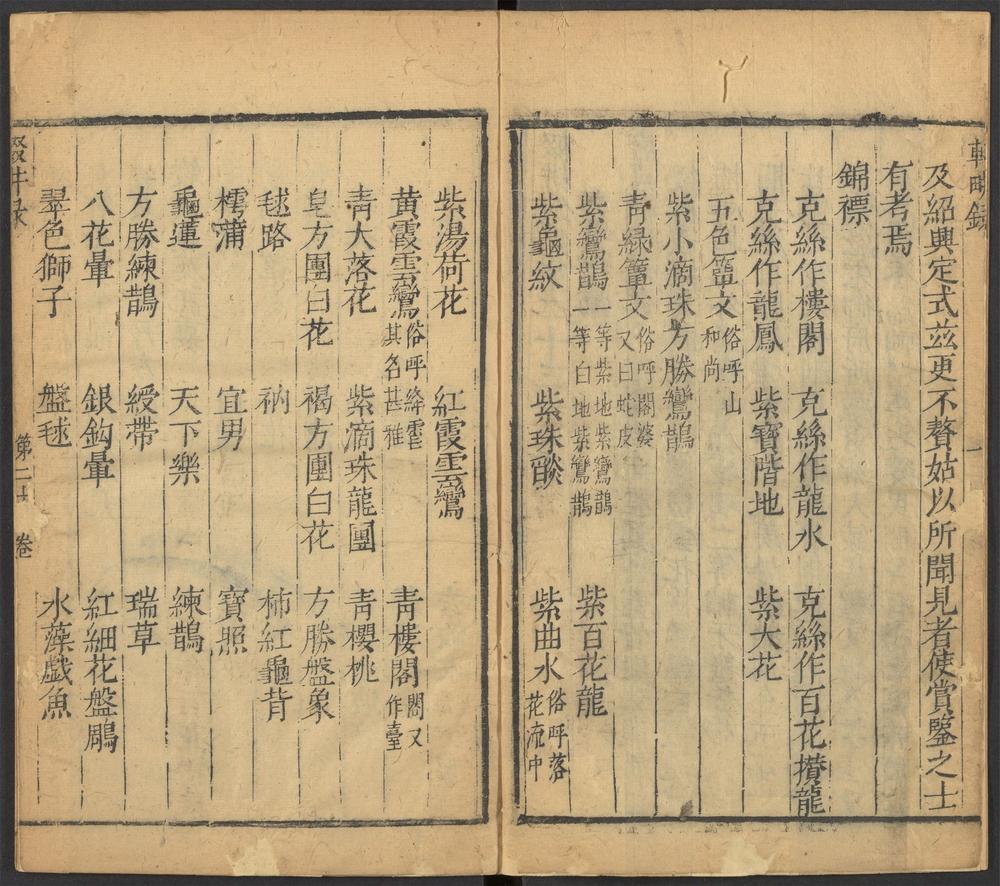 及紹興定式茲更不贅姑以所聞見者使賞鑒之士
有考焉
錦褾
克絲作樓閣 克絲作龍水 克絲作百花攢龍
克絲作龍鳳 紫寶階地 紫大花
五色簟文 俗呼山和尚
紫小滴珠方勝鸞鵲
青綠簟文 俗呼闍婆又曰蛇皮
紫鸞鵲 一等紫地紫鸞鵲一等白地紫鸞鵲 紫百花龍
紫龜紋 紫珠燄 紫曲水 俗呼落花流中
紫湯荷花 紅霞雲鸞
黃霞雲鸞 俗呼絳霄其名甚雅 青樓閣 閣又作臺
青大落花 紫滴珠龍團 青櫻桃
皂方團白花 褐方團白花 方勝盤象
毬路 衲 柿紅龜背
樗蒲 宜男 寶照
龜蓮 天下樂 練鵲
方勝練鵲 綬帶 瑞草
八花暈 銀鈎暈 紅細花盤鵰
翠色獅子 盤毬 水藻戲魚
第二十 卷